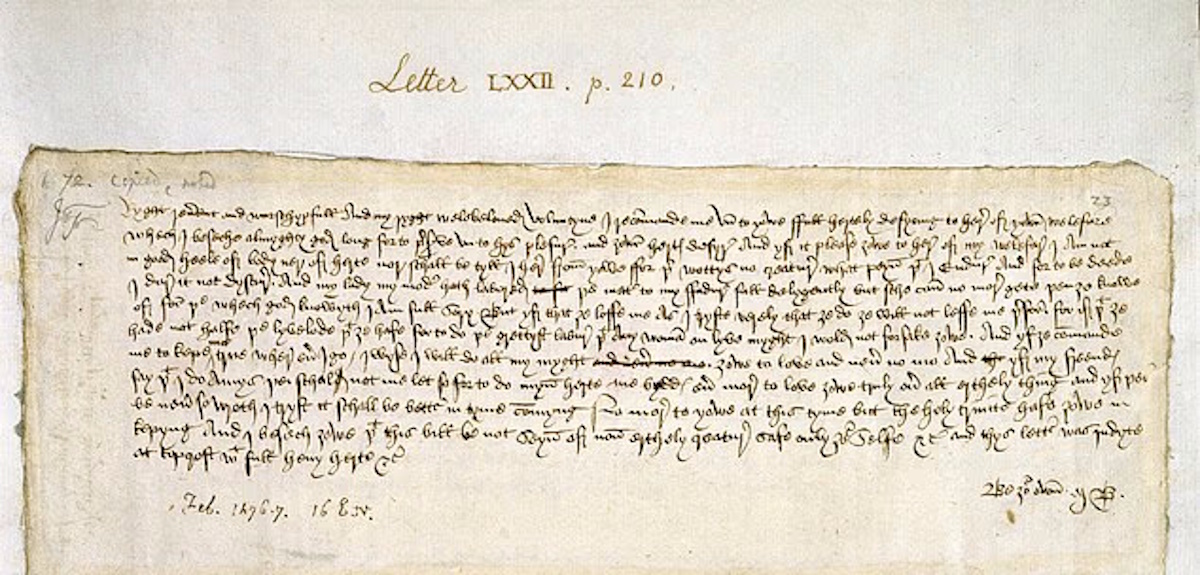 Letter LXXII. p. 210.
72.
23
Ryght reverent and wurschypfull And my ryght welebeloved Voluntyne I recommande me vn to yowe ffull hertely desyring to here of yowr welefare
Whech I beseche almyghty god long for to preserve vn to hys plesur and yowr hertys desyre And yf it please yowe to here of my welefare I am not
in good heele of body ner of herte nor schall be tyll I here from yowe ffor þer wottys no creature what peyn þat I endure And for to be deede
I dare it not dyscure And my lady my moder hath labored þe mater to my ffadure full delygently but sche can no more gete þen ze knowe
of for þe whech god knowyth I am full sory But yf that ze loffe me as I tryste verely that ze do ze will not leffe me þerfor for if þat ze
hade not halfe þe lyvelode þat ze hafe for to do þe grettyst labure þat any woman on lyve myght I wold not forsake yowe And yf ze commande
me to kepe me true wher euer I go I wyse I will do all my myght zowe to love and neuer no mo And yf my freends
say þat I do amys þei schal not me let so for to do myn herte me bydds euer more to love zowe truly ouer all erthely thing and yf þei
be neuer so wroth I tryst it schall be better in tyme commyng No more to yowe at this tyme but the holy trinite hafe yowe in
kepyng And I besech zowe þat this bill be not seyn of non erthely creature safe only zour selfe &c and thys letter was indyte
at Topcroft wt full heuy herte &c
Be zour own M B.
Feb. 1476-7. 16 E. IV.